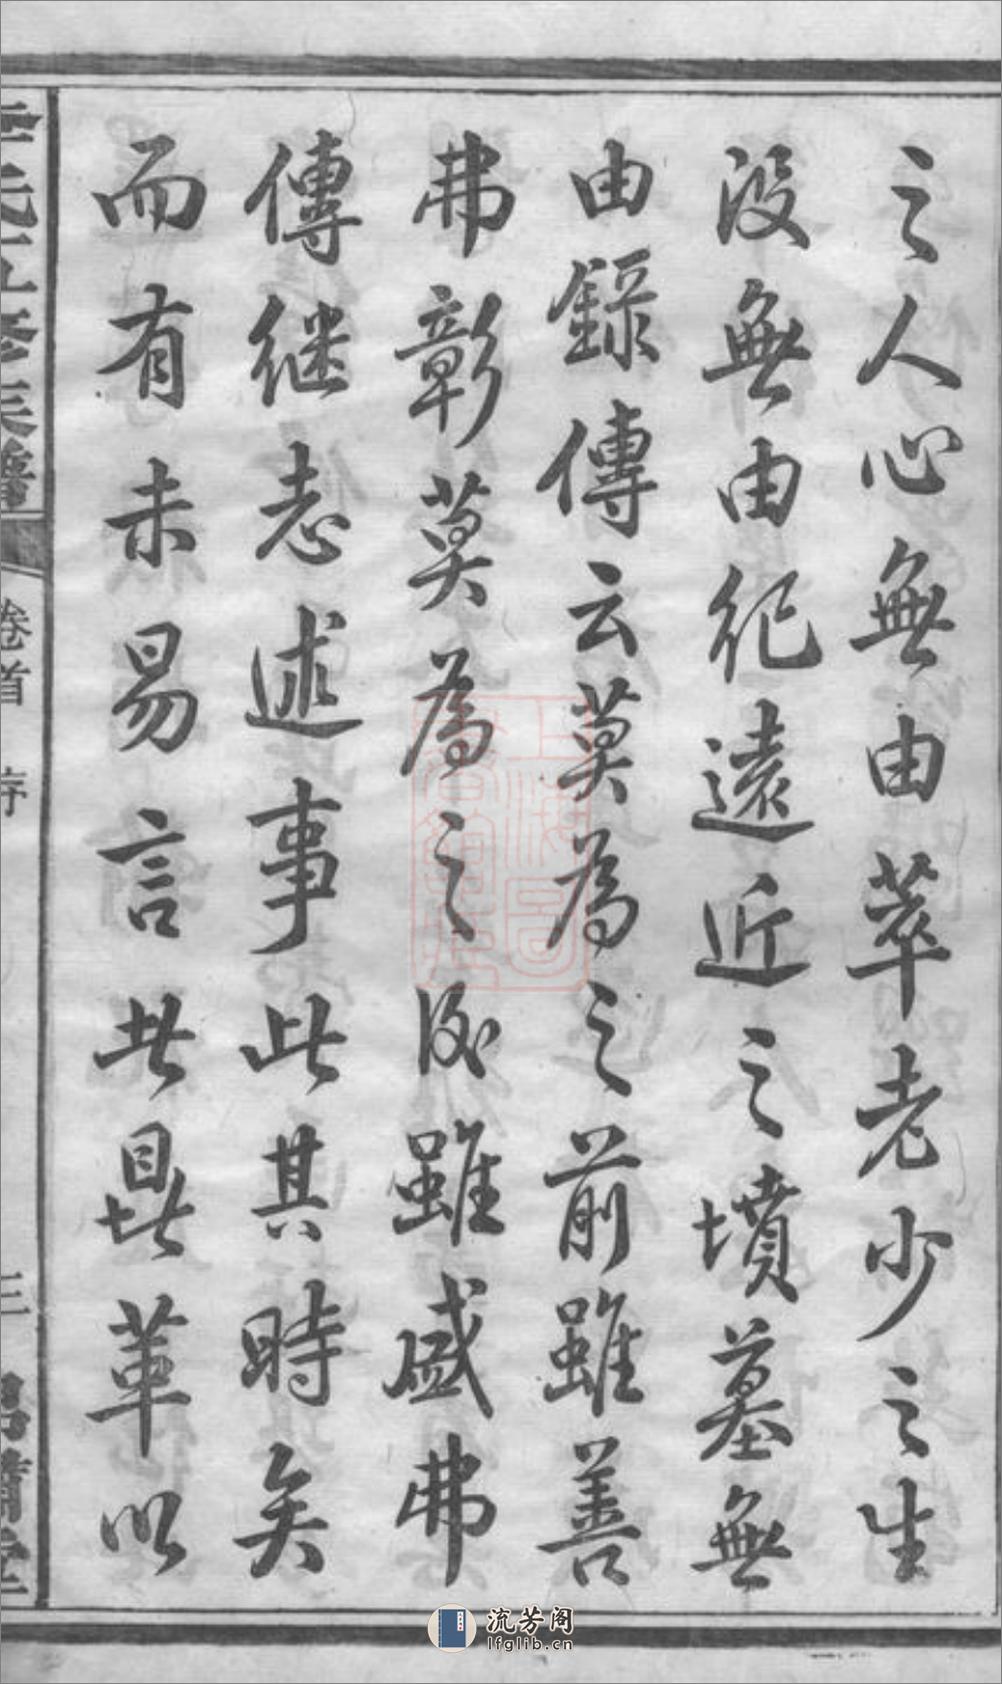 之人心無由萃老少之生
沒無由紀遠近之墳墓無
由錄傳云莫為之前雖善
弗彰莫為之後雖盛弗
傳继志述事此其時矣
而有未易言者鼎革以
氏五修族譜
卷首
序
三
流芳阁
lfglib.cn